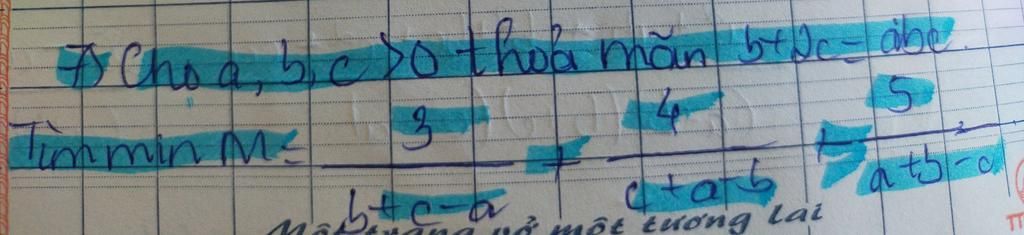 7) Cho a, b, c >0 thoả mãn b+2c=abc.
Tìm min M= 3/(b+c-a) + 4/(c+a-b) + 5/(a+b-c)
một tương lai